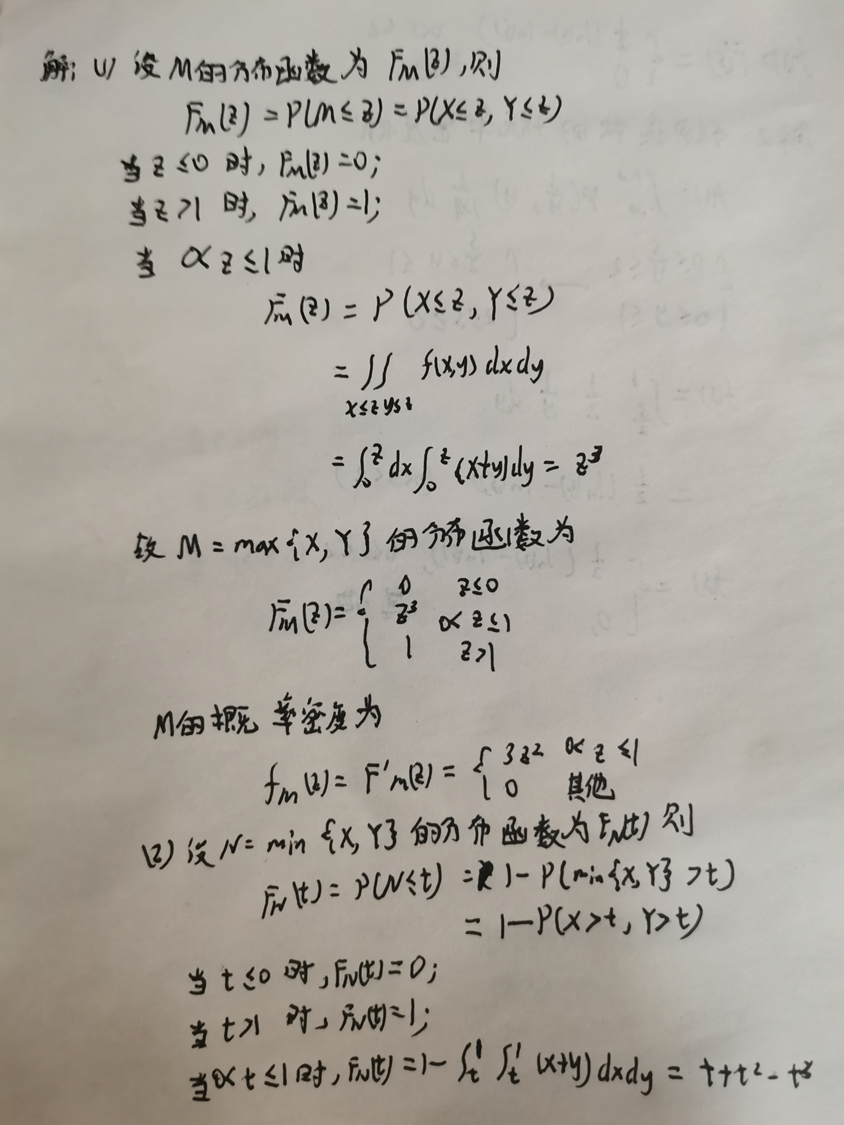 解: (1) 设M的分布函数为 F_M(z),则
F_M(z) = P(M≤z) = P(X≤z, Y≤z)
当 z≤0 时, F_M(z)=0;
当 z>1 时, F_M(z)=1;
当 0<z≤1时
F_M(z) = P(X≤z, Y≤z)
= ∬ f(x,y) dxdy
x≤z y≤z
= ∫₀^z dx ∫₀^z (x+y)dy = z³
故 M = max{X, Y} 的分布函数为
F_M(z) = { 0 z≤0
z³ 0<z≤1
1 z>1
M的概率密度为
f_M(z) = F'_M(z) = { 3z² 0<z≤1
0 其他
(2) 设 N = min {X, Y} 的分布函数为 F_N(t) 则
F_N(t) = P(N≤t) = 1-P(min{X,Y}>t)
= 1-P(X>t, Y>t)
当 t≤0 时, F_N(t)=0;
当 t>1 时, F_N(t)=1;
当0<t≤1时, F_N(t)=1-∫_t^1 ∫_t^1 (x+y)dxdy = t+t²-t³